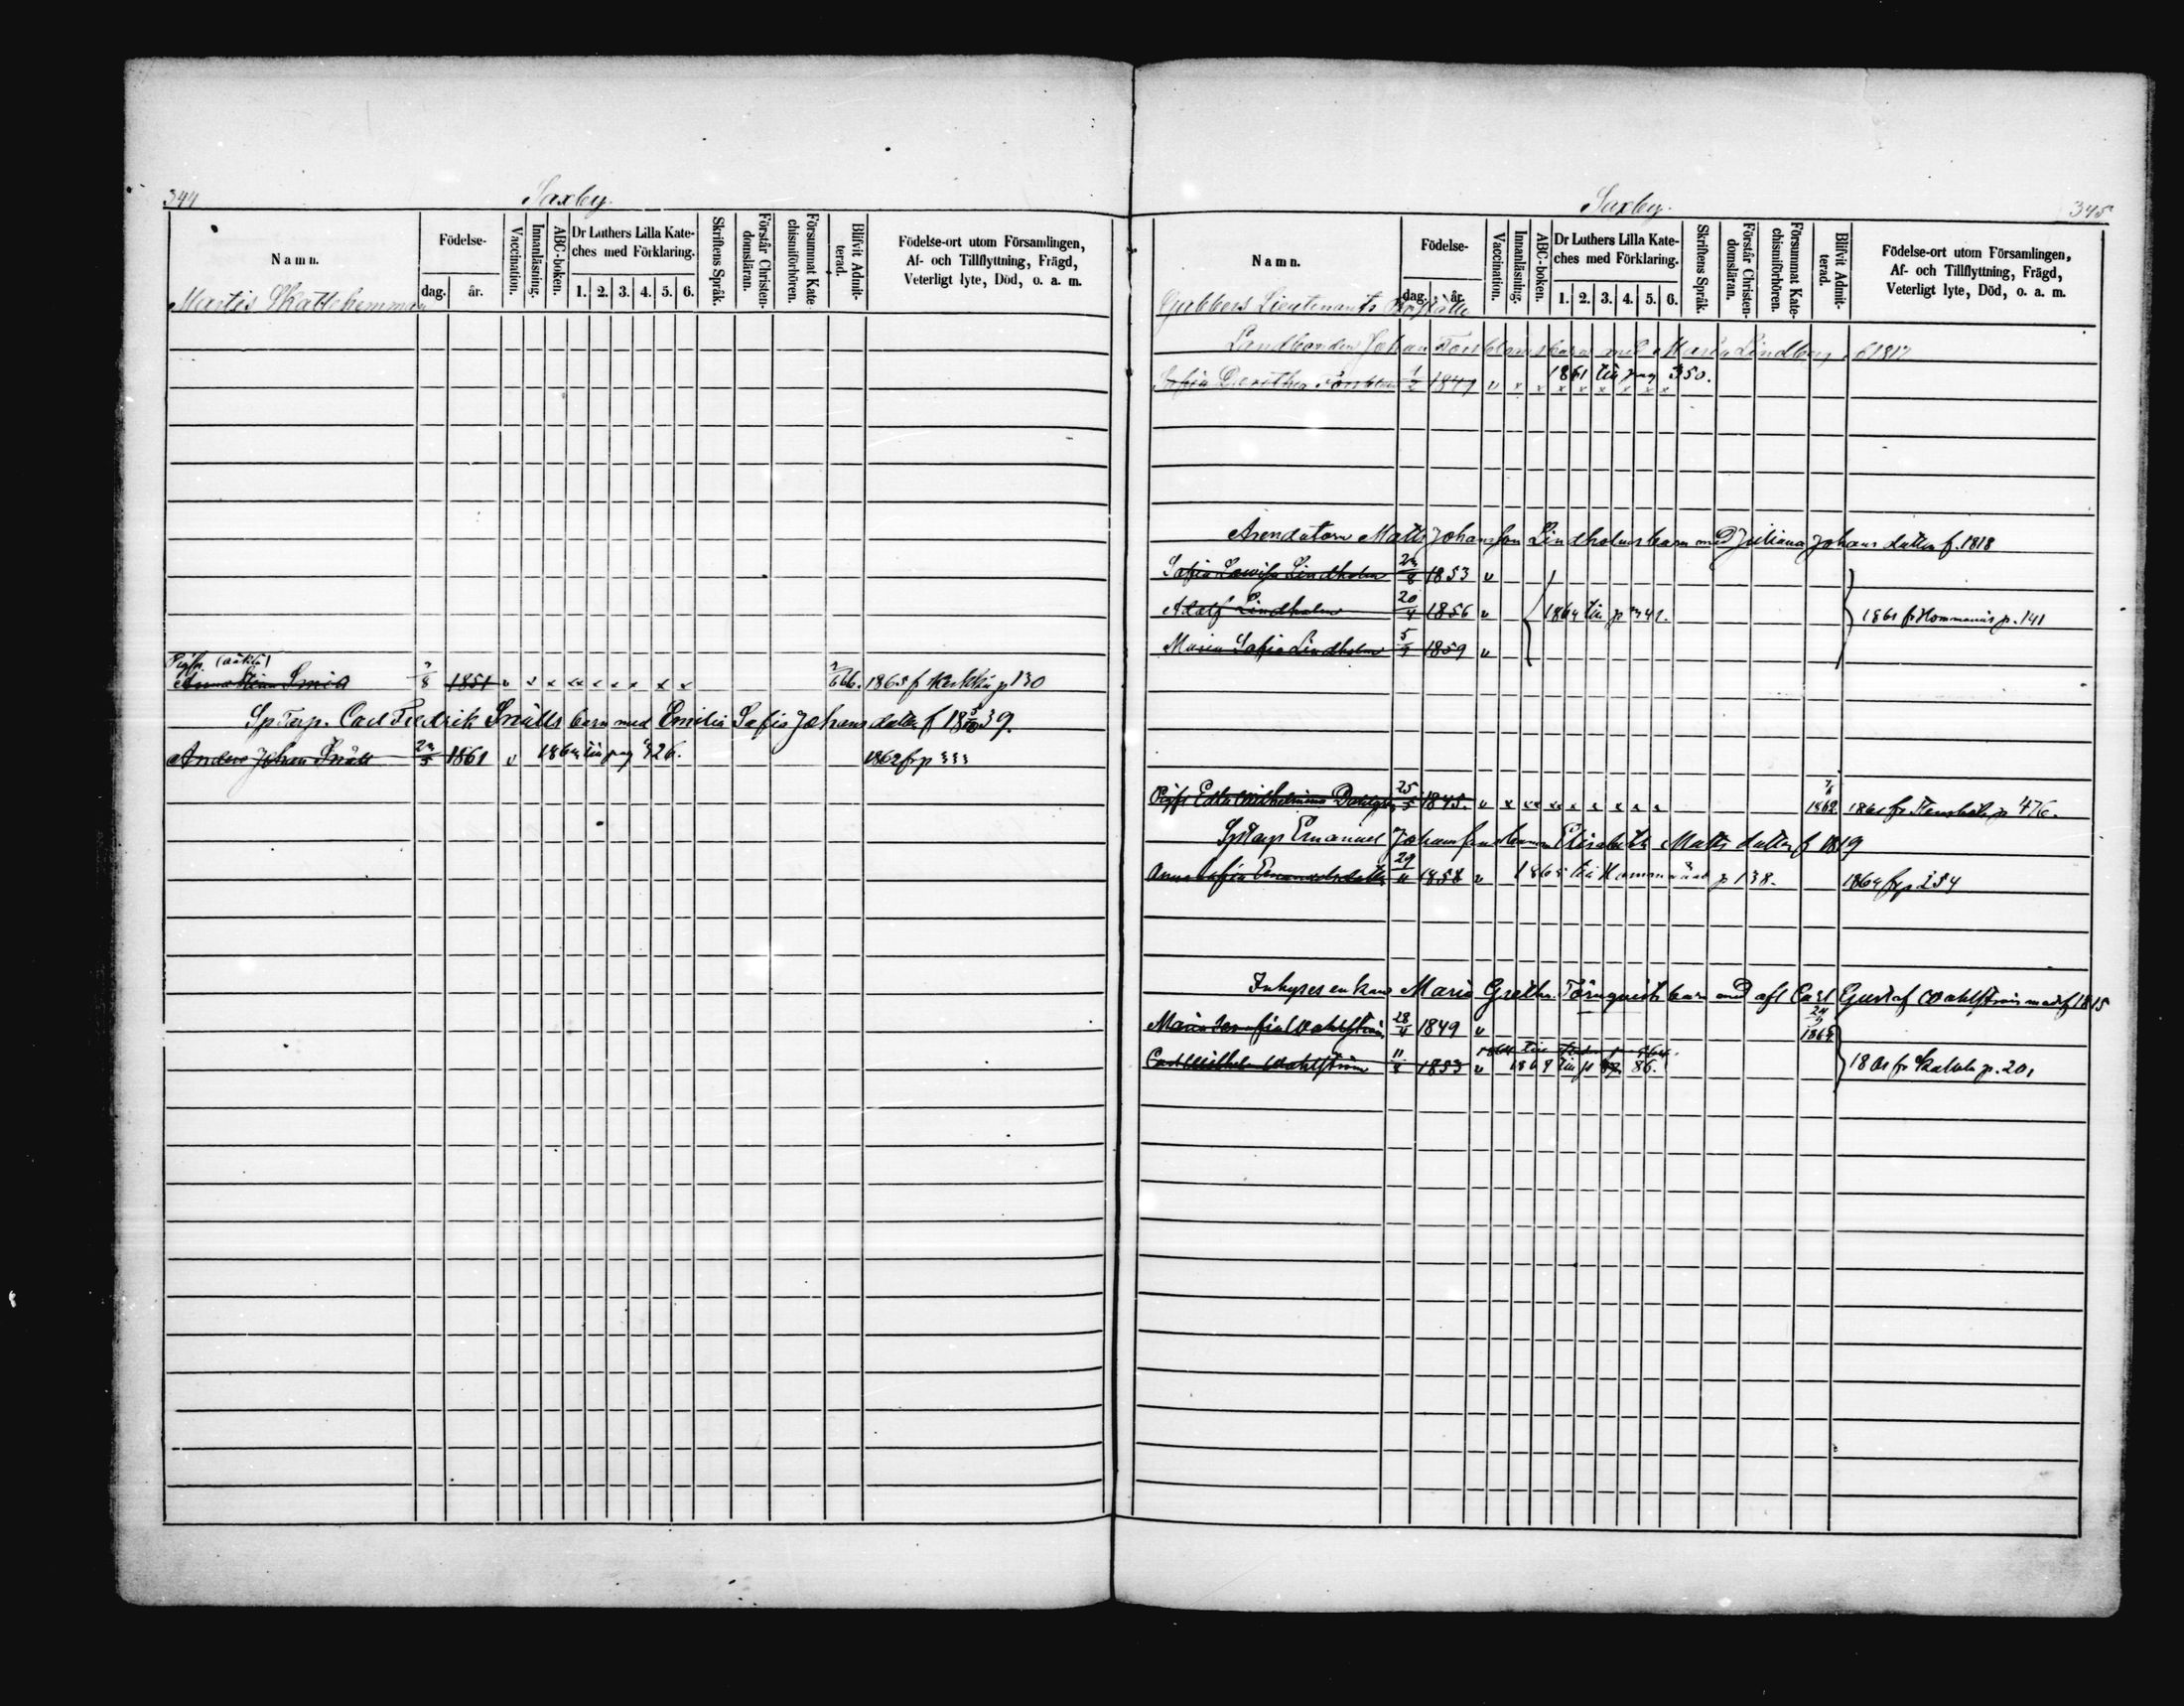 344
Saxby.
Namn.
Födelse-
dag.
år.
Vaccination.
Innanläsning.
ABC-boken.
Dr Luthers Lilla Kate-
ches med Förklaring.
1. 2. 3. 4. 5. 6.
Skriftens Språk.
Förstår Christen-
domsläran.
Försummat Kate
chismiförhören.
Blifvit Admit-
terad.
Födelse-ort utom Församlingen,
Af- och Tillflyttning, Frägd,
Veterligt lyte, Död, o. a. m.
Martis Skattehemman
Anna Stina 1851 v x x x x x x x x 1865 f p 130
Sp Torp. Carl Fredrik Snälls barn med Emilia Sofia Johans datter f 18 5/10 39.
Anders Johan Snäll 1861 v 1864 till pag 326. 1862 fr p 333
Saxby.
345
Namn.
Födelse-
dag.
år.
Vaccination.
Innanläsning.
ABC-boken.
Dr Luthers Lilla Kate-
ches med Förklaring.
1. 2. 3. 4. 5. 6.
Skriftens Språk.
Förstår Christen-
domsläran.
Försummat Kate-
chismiförhören.
Blifvit Admit-
terad.
Födelse-ort utom Församlingen,
Af- och Tillflyttning, Frägd,
Veterligt lyte, Död, o. a. m.
Gubbers Lieutenants Boställe
Landbonden Johan barn med Maria Lindberg f 1817
1861 till pag 350.
Sofia Dorothea 1/2 v x x x x x x x x x
Arendatorn Matts Johansson Lindholms barn med Juliana Johans datter f. 1818
Sofia Lovisa Lindholm 1853 v
Adolf Lindholm 20/4 1856 v 1864 till p 341. 1861 fr Hommanäs p. 141
Maria Sofia Lindholm 1859 v
Pigfl Edla Wilhelmina 25/5 1845. v x x x x x x x x 1862 1861 fr p 476.
Sp Torp Emanuel Johansson barn Elisabeth Matts datter f 1819
Anna Sofia Emanuelsdatter 29/11 1858 v 1865 till Hommanäs p 138. 1864 fr p 254
Inhyses enkans Maria Greta Törnqvists barn med afl Carl Gustaf Wahlström f 1815
Maria Serafia Wahlström 28/4 1849 v
Carl Wilhelm Wahlström 11/8 1853 v 1869 till p 86. 1861 fr p. 201